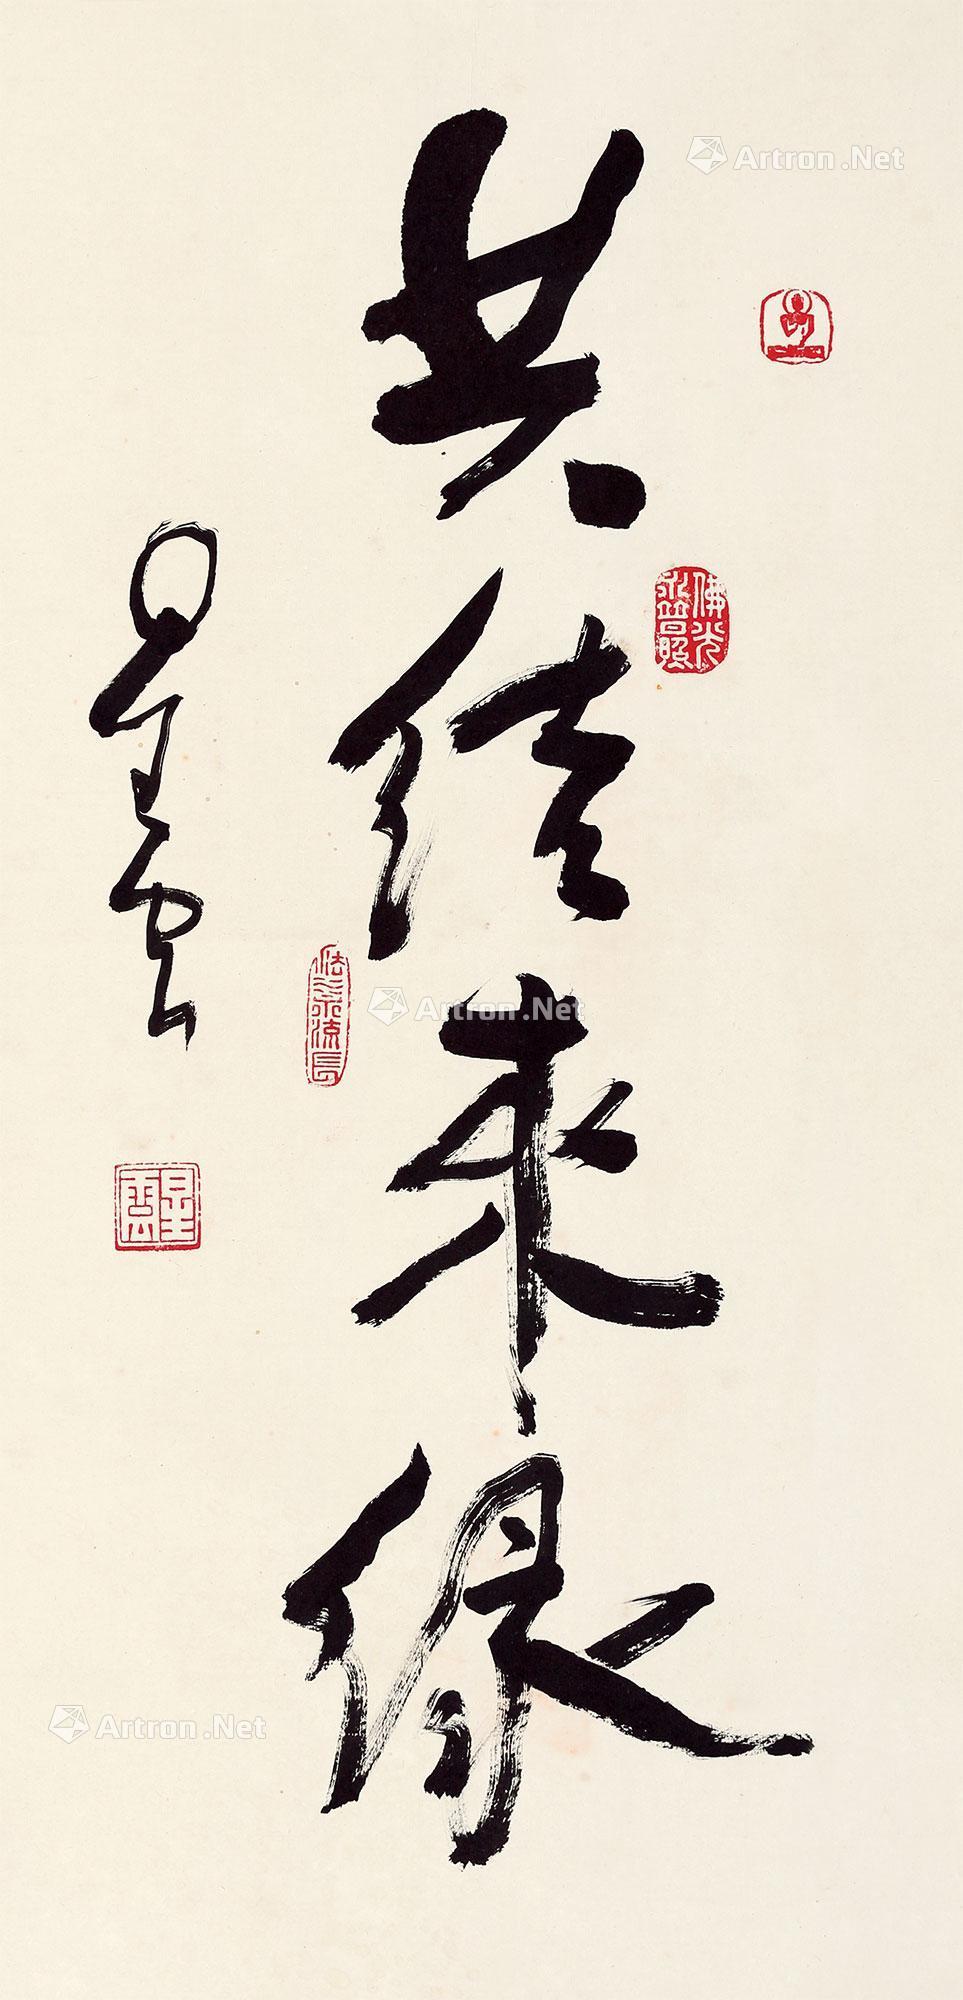 共結來緣
星雲
佛光
永普照
法水流長
星雲
Artron.Net
Artron.Net
Artron.Net